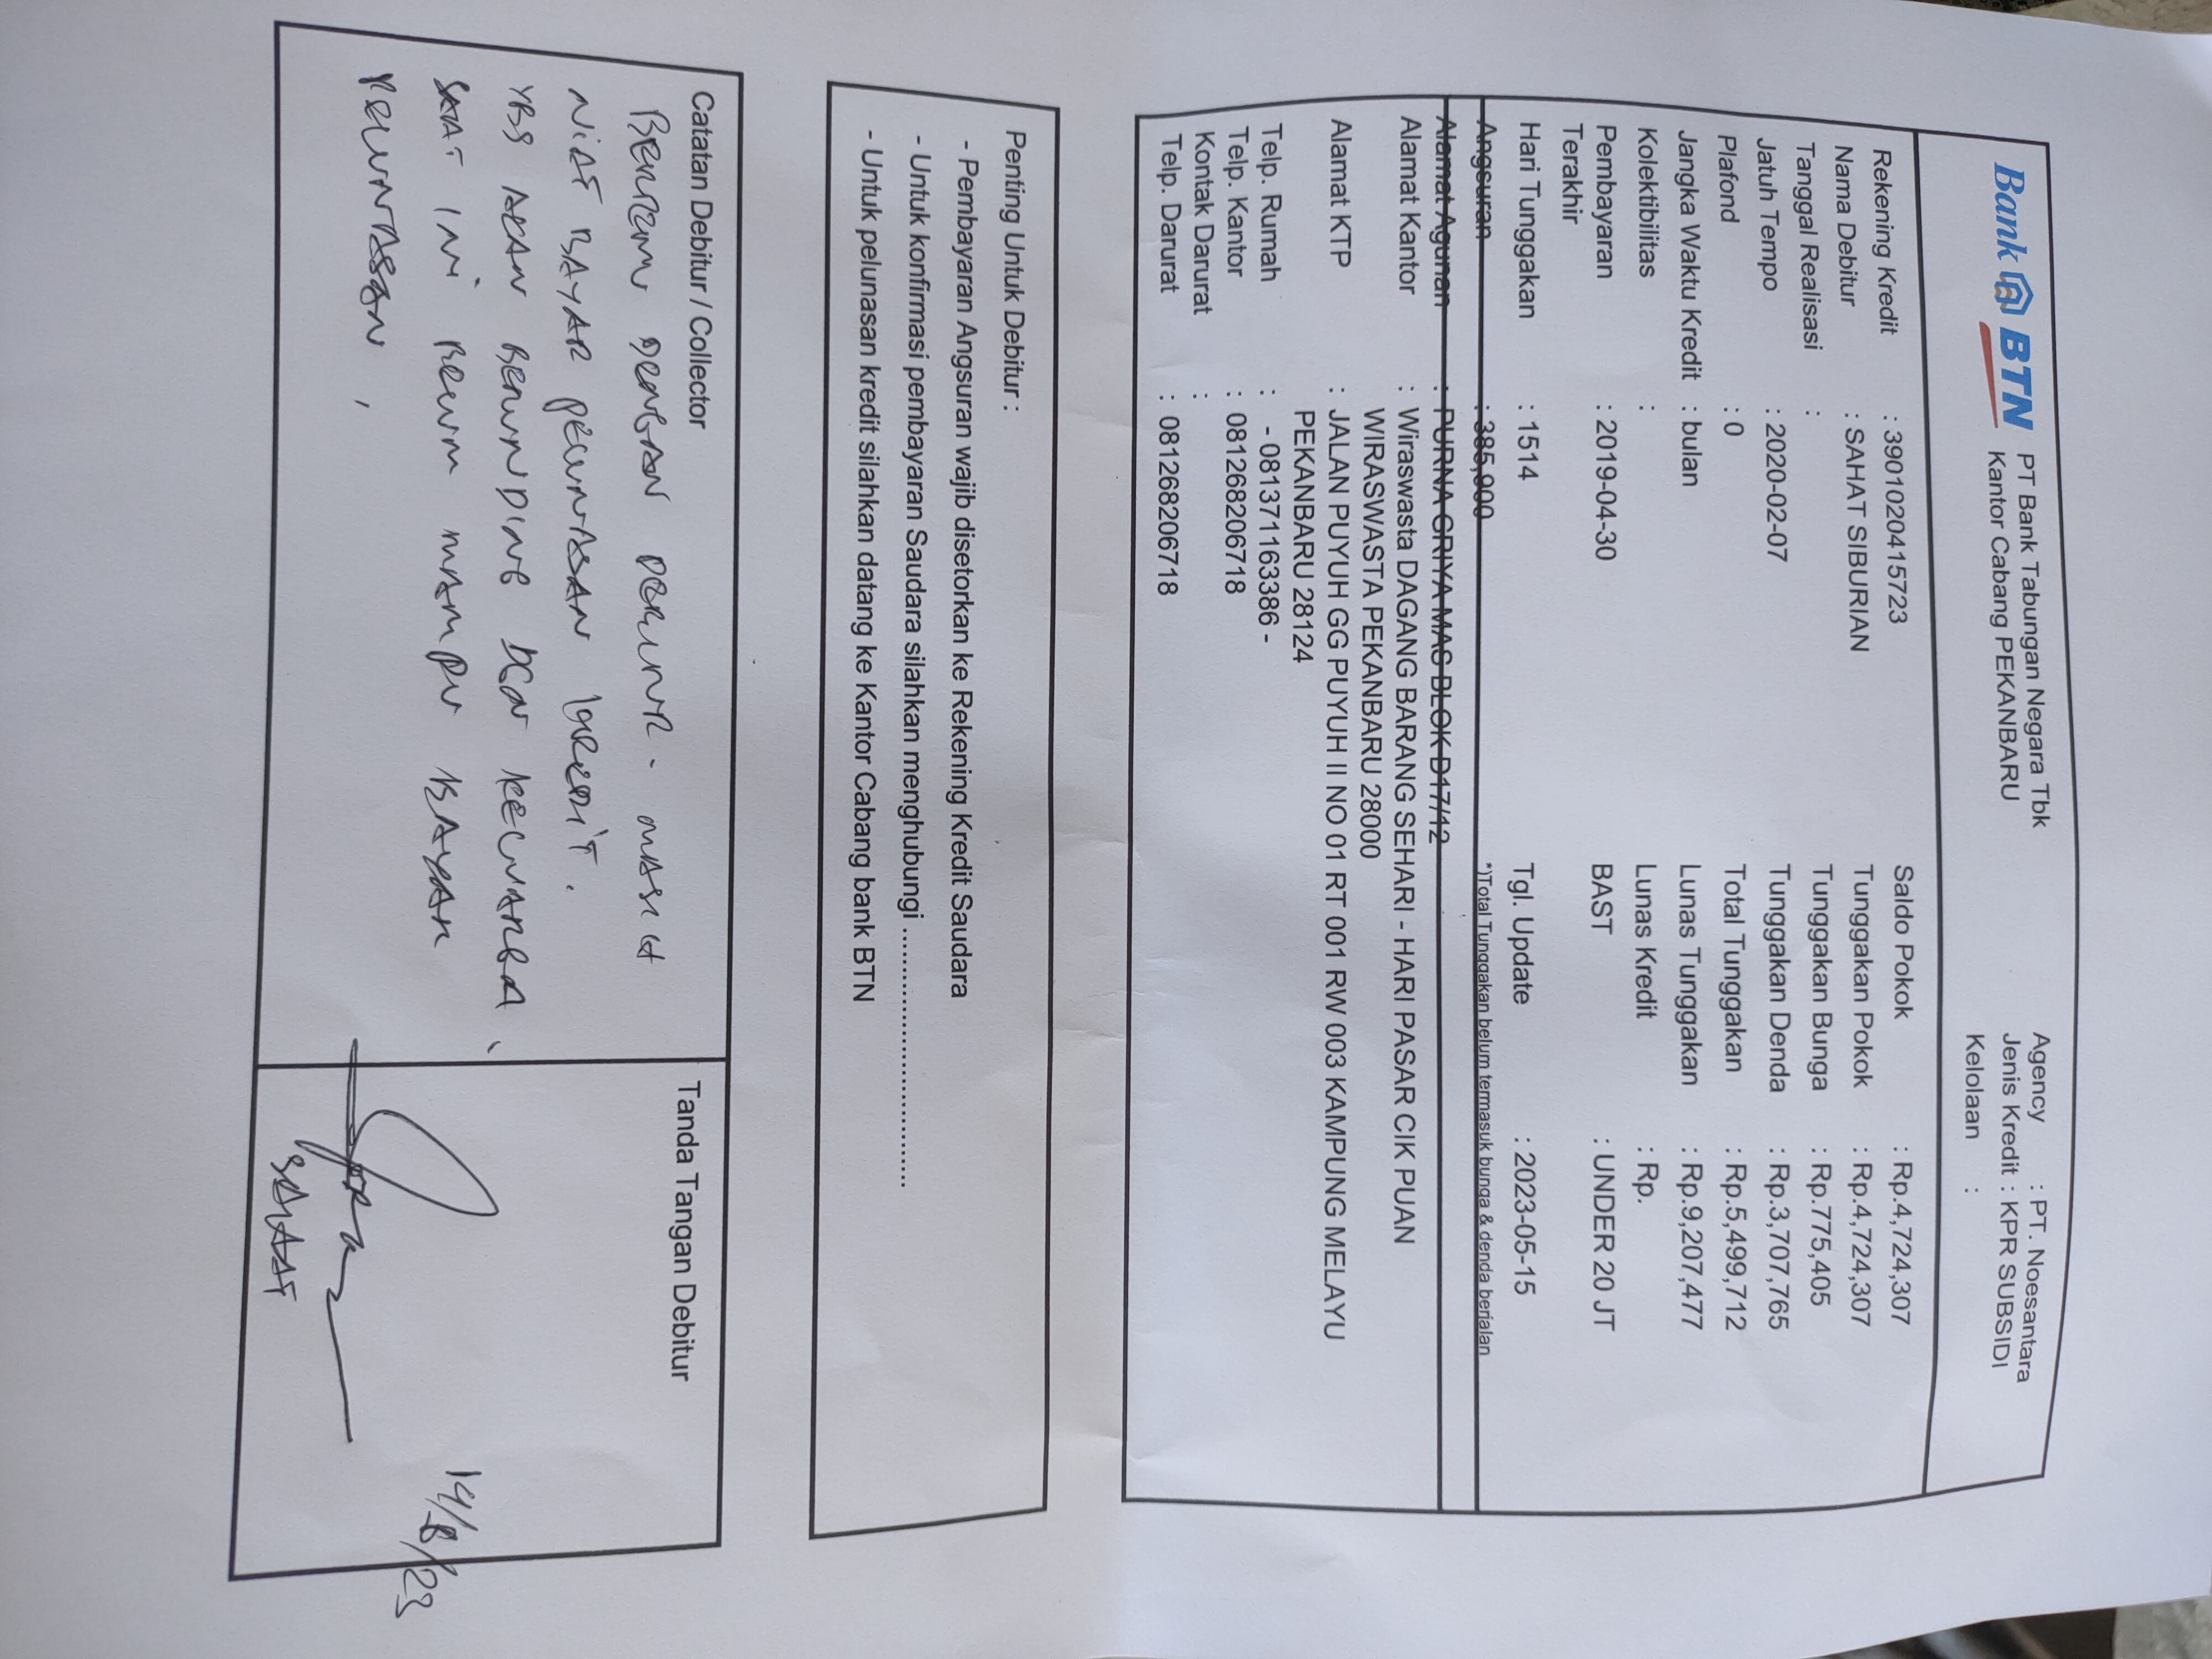 Bank BTN
PT Bank Tabungan Negara Tbk
Kantor Cabang PEKANBARU
Agency : PT. Noesantara
Jenis Kredit : KPR SUBSIDI
Kelolaan :
Rekening Kredit : 3901020415723
Saldo Pokok : Rp.4,724,307
Nama Debitur : SAHAT SIBURIAN
Tunggakan Pokok : Rp.4,724,307
Tanggal Realisasi :
Tunggakan Bunga : Rp.775,405
Jatuh Tempo : 2020-02-07
Tunggakan Denda : Rp.3,707,765
Plafond : 0
Total Tunggakan : Rp.5,499,712
Jangka Waktu Kredit : bulan
Lunas Tunggakan : Rp.9,207,477
Kolektibilitas :
Lunas Kredit : Rp.
Pembayaran Terakhir : 2019-04-30
BAST : UNDER 20 JT
Hari Tunggakan : 1514
Tgl. Update : 2023-05-15
Angsuran : 385,900
*)Total Tunggakan belum termasuk bunga & denda berjalan
Alamat Agunan : PURNA GRIYA MAS BLOK D17/12
Alamat Kantor : Wiraswasta DAGANG BARANG SEHARI - HARI PASAR CIK PUAN
WIRASWASTA PEKANBARU 28000
Alamat KTP : JALAN PUYUH GG PUYUH II NO 01 RT 001 RW 003 KAMPUNG MELAYU
PEKANBARU 28124
Telp. Rumah : - 081371163386 -
Telp. Kantor : 081268206718
Kontak Darurat :
Telp. Darurat : 081268206718
Penting Untuk Debitur :
- Pembayaran Angsuran wajib disetorkan ke Rekening Kredit Saudara
- Untuk konfirmasi pembayaran Saudara silahkan menghubungi ..............................
- Untuk pelunasan kredit silahkan datang ke Kantor Cabang bank BTN
Catatan Debitur / Collector
BERTEMU DENGAN DEBITUR - MASIH
NIAT BAYAR PELUNASAN KREDIT.
YBS AKAN BERUNDING DGN KELUARGA,
SAAT INI BELUM MAMPU BAYAR
PELUNASAN,
Tanda Tangan Debitur
14/8/23
SAHAT